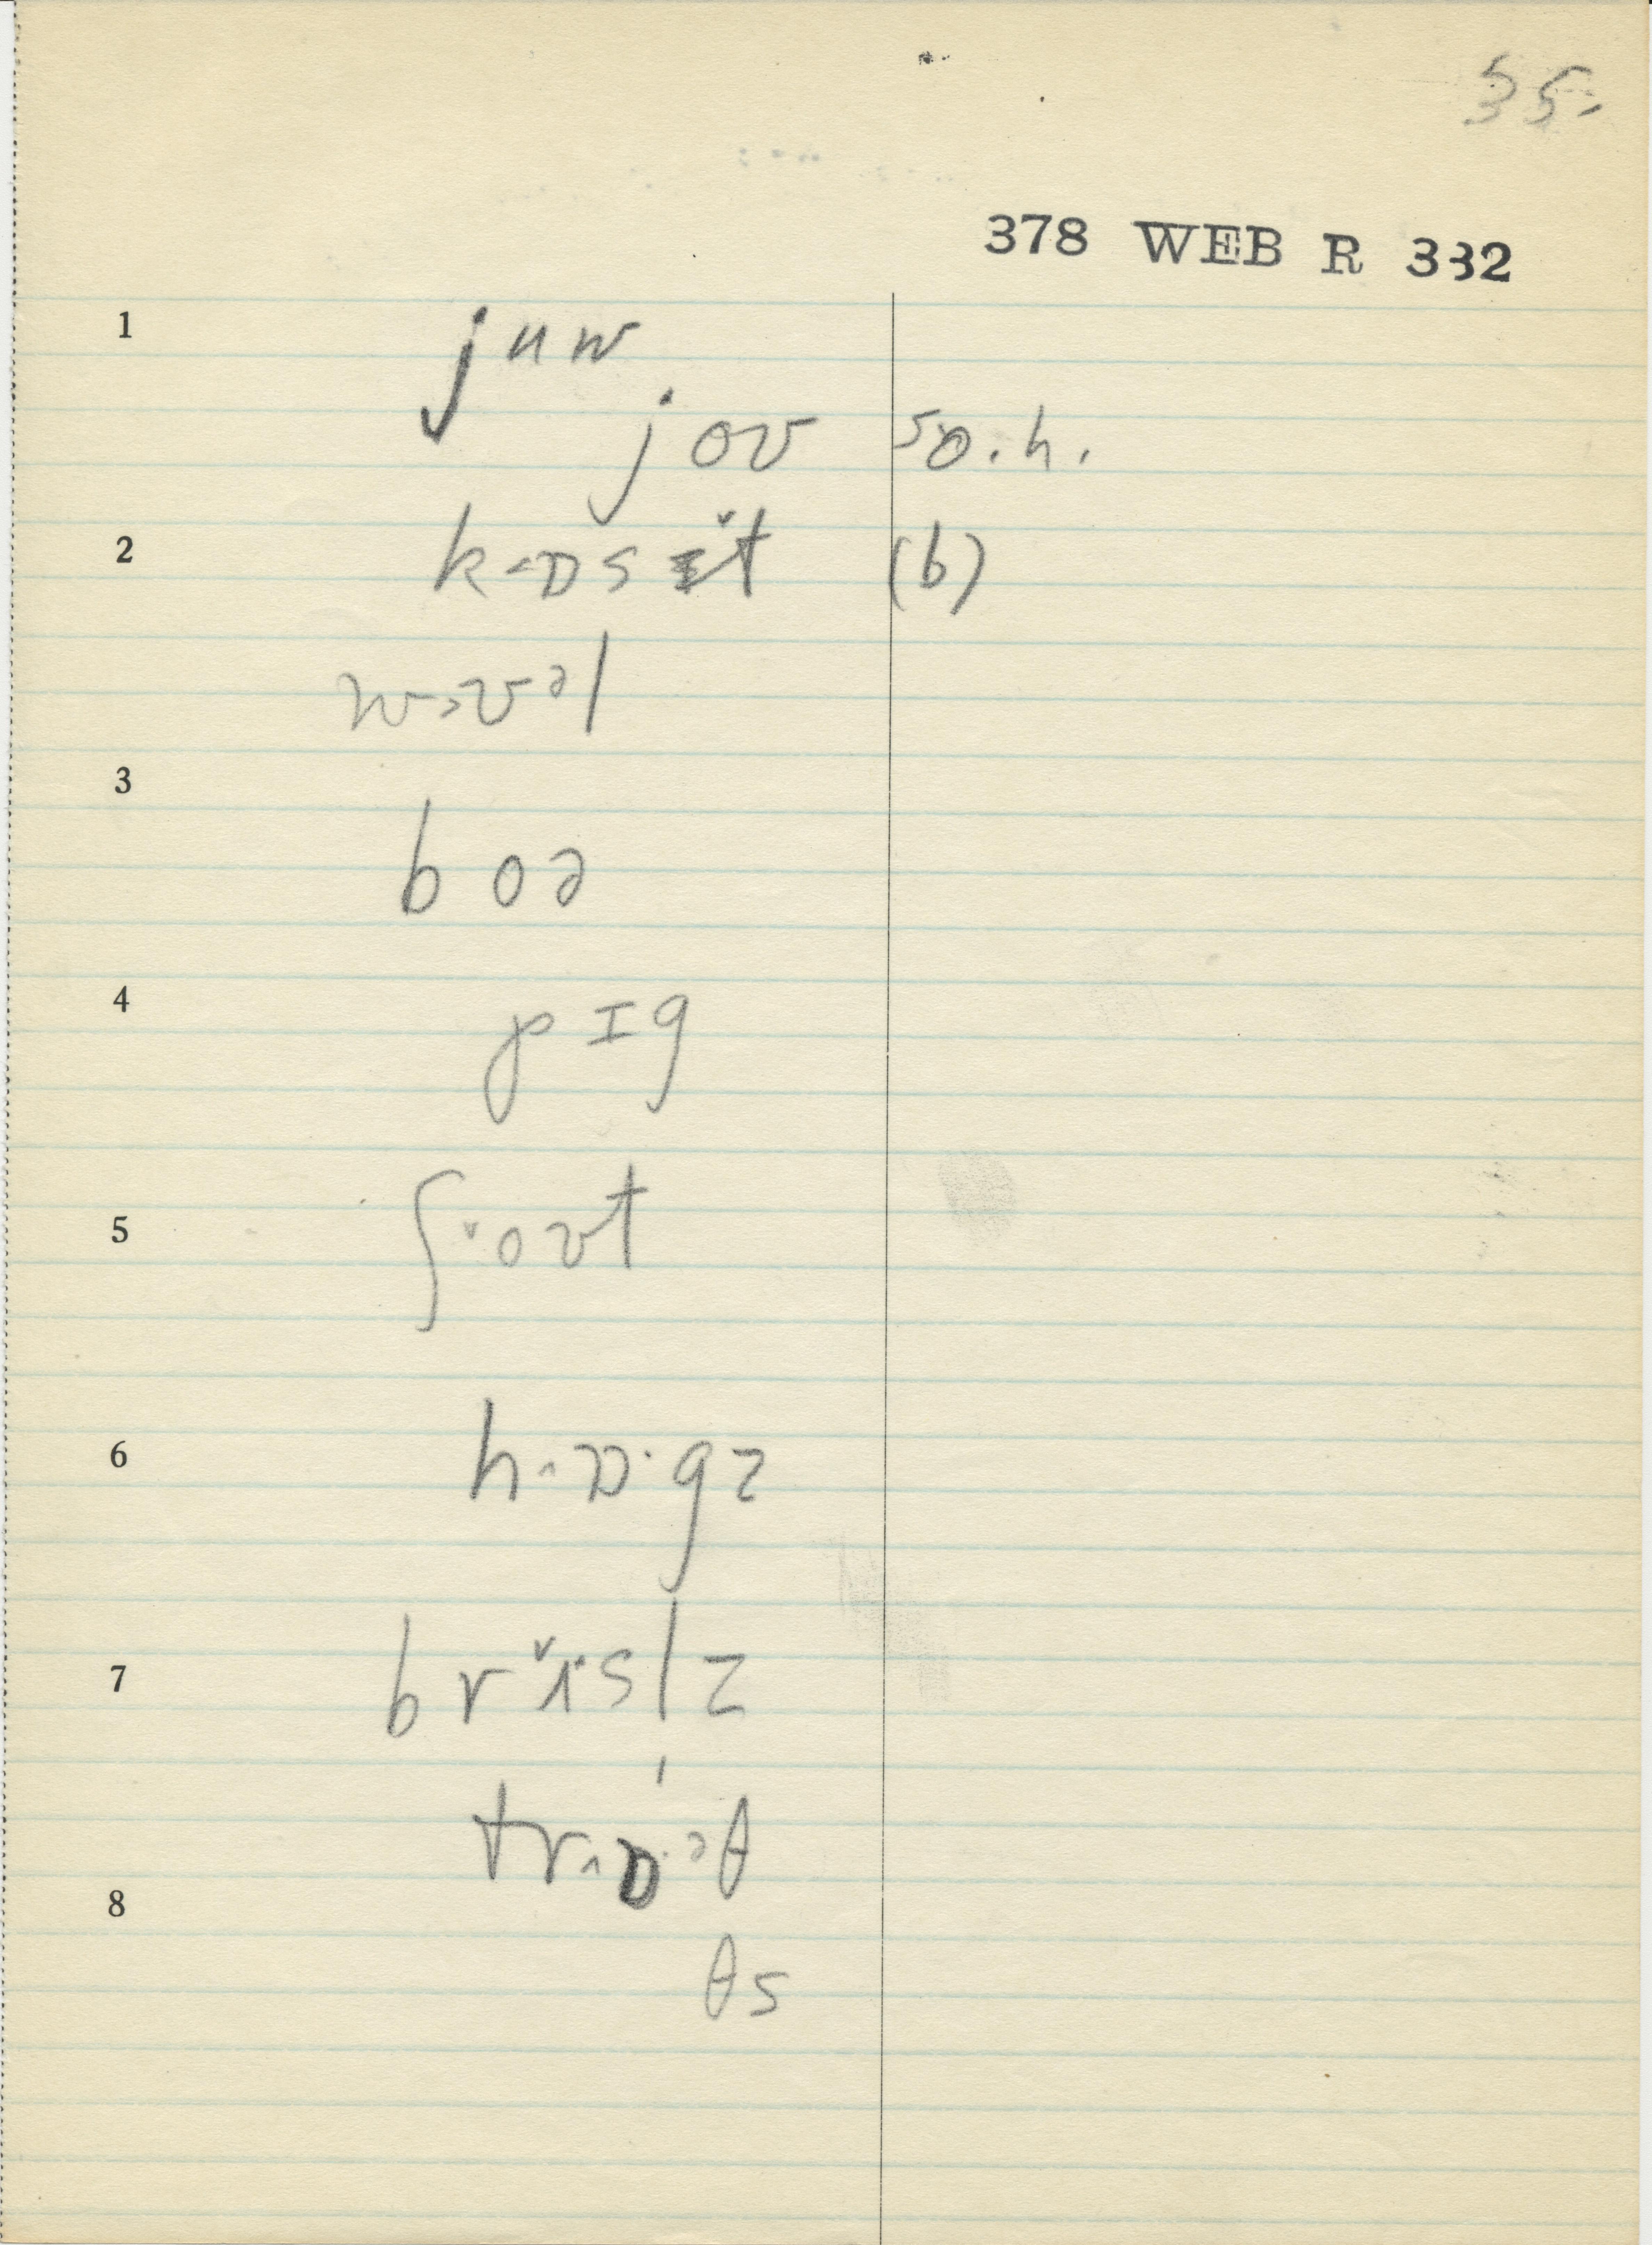 35.
378 WEB R 332
1 juw
jov so. h.
2 k˂ɒsɪ̌t (b)
w˃ʊᵊl
3 boə
4 pɪg
5 ʃ˅oʊt
6 h˄ɒ·gz
7 brɪ̌slz
trɒ·əθ
8
θs